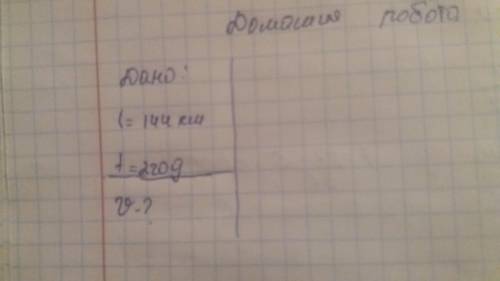 Домашня робота
Дано:
l = 144 км
t = 2 год
v - ?